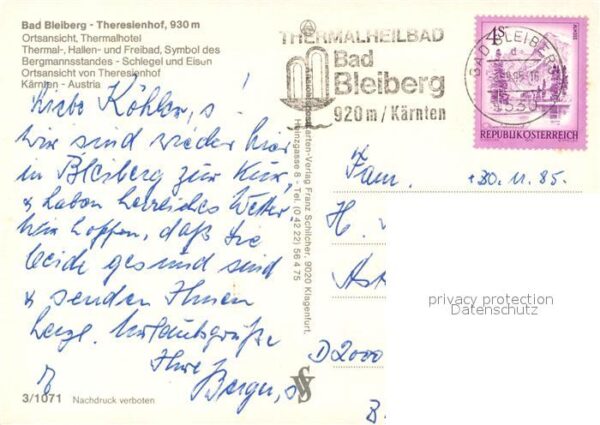 Bad Bleiberg - Theresienhof, 930 m
Ortsansicht, Thermalhotel
Thermal-, Hallen- und Freibad, Symbol des
Bergmannsstandes - Schlegel und Eisen
Ortsansicht von Theresienhof
Kärnten - Austria
Liebe Köhler, s!
Wir sind wieder hier
in Bleiberg zur Kur,
& haben herrliches Wetter.
Wir hoffen, daß Sie
beide gesund sind
& senden Ihnen
herzl. Urlaubsgrüße
Ihre
Berger, s
3/1071 Nachdruck verboten
THERMALHEILBAD
Bad
Bleiberg
920 m / Kärnten
BAD BLEIBERG
9530
4S
REPUBLIK ÖSTERREICH
arten-Verlag Franz Schilcher, 9020 Klagenfurt,
Heinzgasse 8 - Tel. (0 42 22) 56 4 75
Fam. 30. 11. 85.
H.
Ast
D 2000
B.
privacy protection
Datenschutz